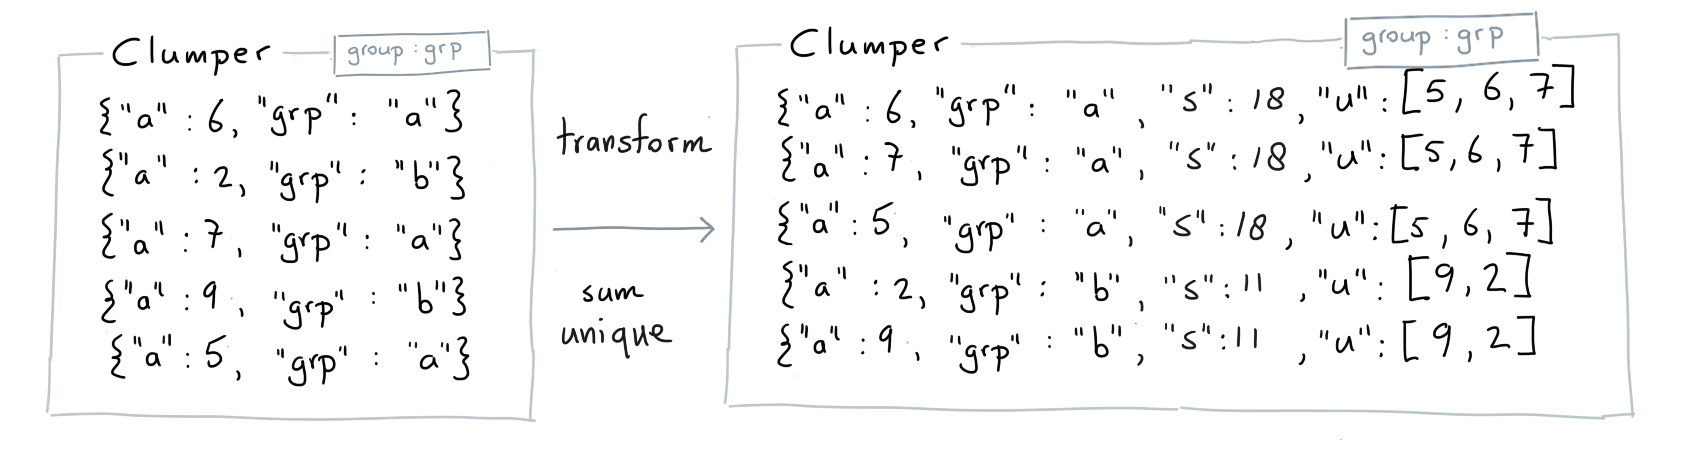 Clumper group : grp
{"a" : 6, "grp" : "a"}
{"a" : 2, "grp" : "b"}
{"a" : 7, "grp" : "a"}
{"a" : 9, "grp" : "b"}
{"a" : 5, "grp" : "a"}
transform
sum
unique
Clumper group : grp
{"a" : 6, "grp" : "a", "s" : 18, "u" : [5, 6, 7]
{"a" : 7, "grp" : "a", "s" : 18, "u" : [5, 6, 7]
{"a" : 5, "grp" : "a", "s" : 18, "u" : [5, 6, 7]
{"a" : 2, "grp" : "b", "s" : 11, "u" : [9, 2]
{"a" : 9, "grp" : "b", "s" : 11, "u" : [9, 2]